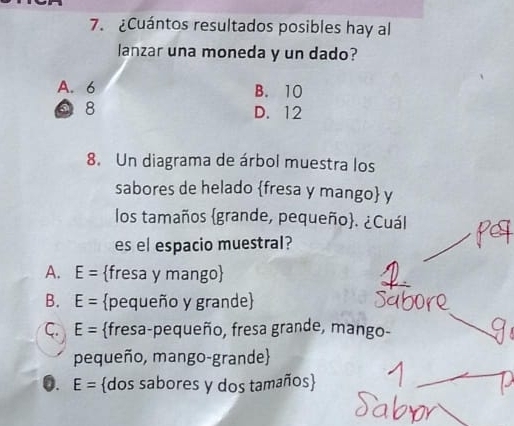 7. ¿Cuántos resultados posibles hay al
lanzar una moneda y un dado?
A. 6
B. 10
8
D. 12
8. Un diagrama de árbol muestra los
sabores de helado {fresa y mango} y
los tamaños {grande, pequeño}. ¿Cuál
es el espacio muestral?
A. E = {fresa y mango}
B. E = {pequeño y grande}
C. E = {fresa-pequeño, fresa grande, mango-
pequeño, mango-grande}
E = {dos sabores y dos tamaños}
Sabore
1
Sabor